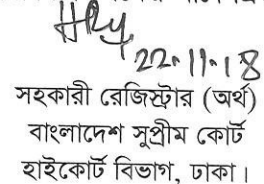 22.11.18
সহকারী রেজিস্ট্রার (অর্থ)
বাংলাদেশ সুপ্রীম কোর্ট
হাইকোর্ট বিভাগ, ঢাকা।